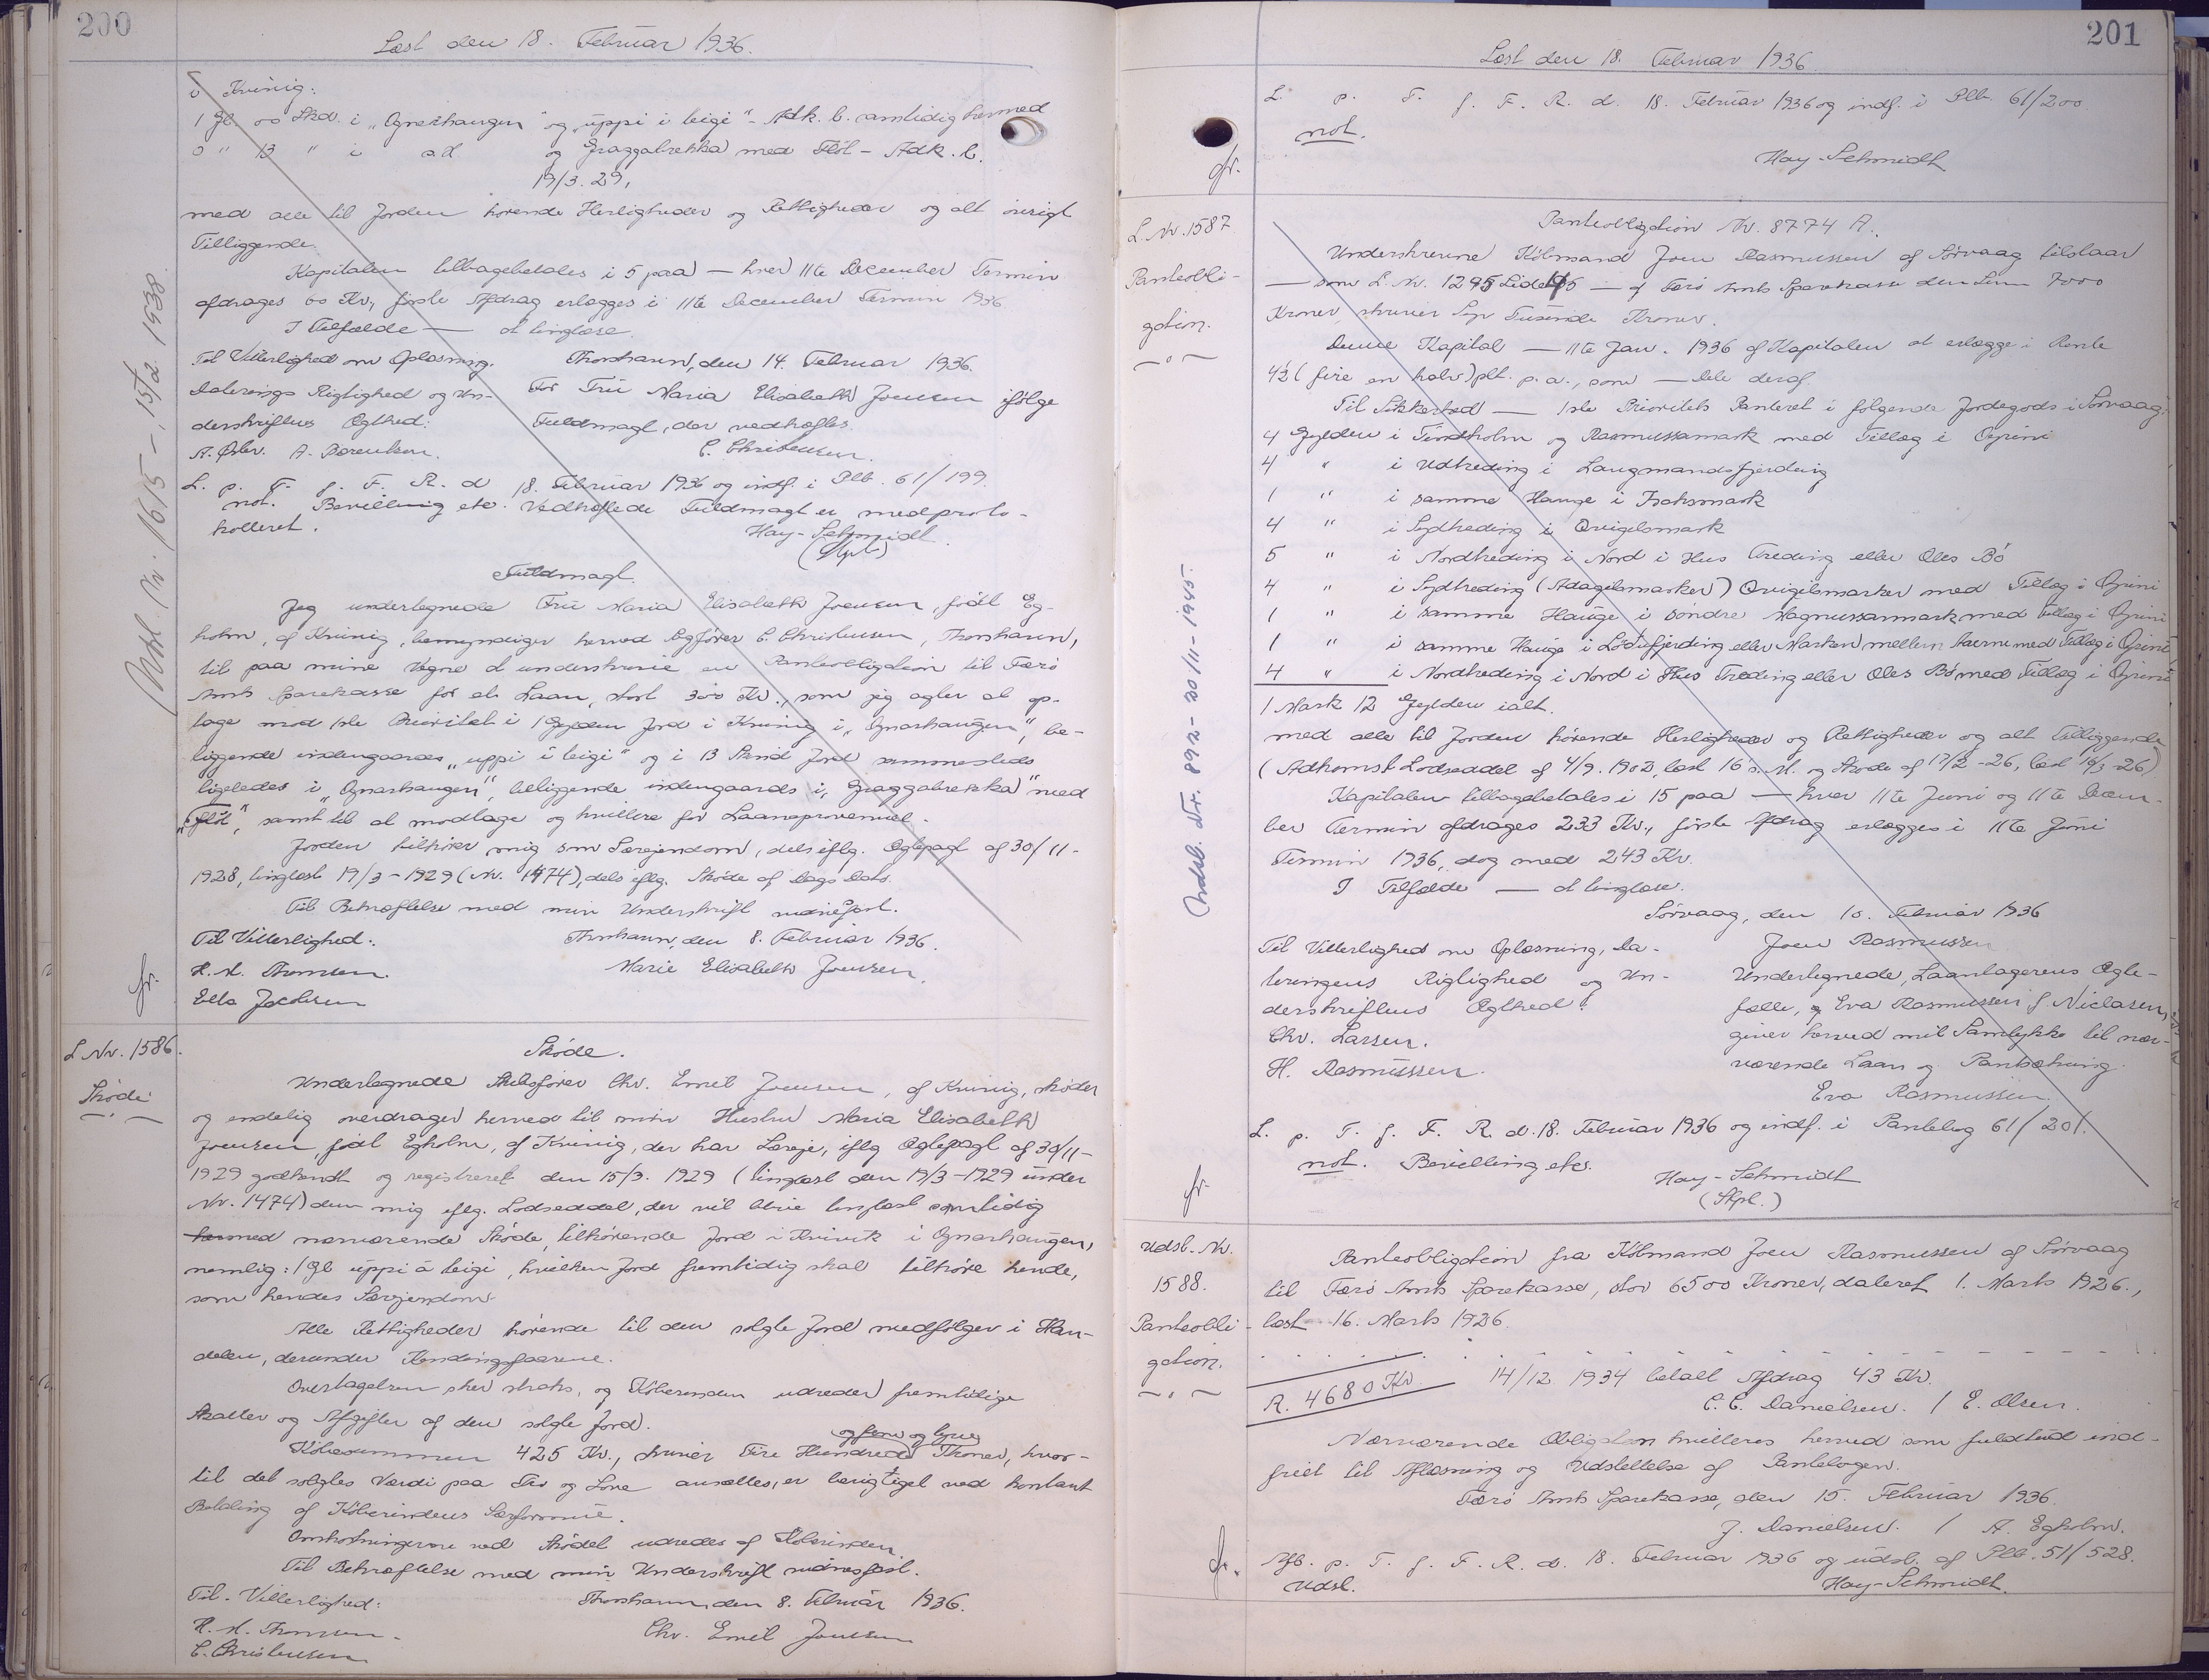 200
Læst den 18. Februar 1936.
i Kvivig:
1 Gl. 00 Skd. i „Ognarhaugen" og „uppi i leigi" - Adk. l. samtidig hermed
0 " 13 " i ad og Graggabrekka med Flöt - Adk. l.
19/3. 29,
med alle til Jorden hørende Herligheder og Rettigheder og alt øvrigt
Tilliggende.
Kapitalen tilbagebetales i 5 paa — hver 11te December Termin
afdrages 60 Kr., første Afdrag erlægges i 11te December Termin 1936.
I Tilfælde — at tinglæse.
Til Vitterlighed om Oplæsning,
Dateringens Rigtighed og Un-
derskriftens Ægthed:
A. Øster. A. Sørensen.
Thorshavn, den 14. Februar 1936.
For Fru Maria Elisabeth Joensen ifølge
Fuldmagt, der vedhæftes.
C. Christensen.
L. p. T. f. F. R. d. 18. Februar 1936 og indf. i Plb. 61/199.
not. Bevilling etc. Vedhæftede Fuldmagt er medproto-
kolleret.
Hay-Schmidt
Udsl. Nr. 1615 - 15/2 1938.
Fuldmagt.
Jeg undertegnede Fru Maria Elisabeth Joensen, født Eg-
holm, af Kvivig, bemyndiger herved Sagfører C. Christensen, Thorshavn,
til paa mine Vegne at underskrive en Panteobligation til Færø
Amts Sparekasse for et Laan, stort 300 Kr., som jeg agter at op-
tage mod 1ste Prioritet i 1 Gylden Jord i Kvivig i „Ognarhaugen", be-
liggende indengaards „uppi i leigi" og i 13 Skind Jord sammesteds
ligeledes i „Ognarhaugen", beliggende indengaards i „Graggabrekka" med
„Flöt", samt til at modtage og kvittere for Laaneprovenuet.
Jorden tilhører mig som Særejendom, dels iflg. Ægtepagt af 30/11-
1928, tinglæst 19/3-1929 (Nr. 1474), dels iflg. Skøde af Dags Dato.
Til Bekræftelse med min Underskrift vidnefast.
Til Vitterlighed:
H. M. Thomsen.
Ella Jacobsen
Thorshavn, den 8. Februar 1936.
Marie Elisabeth Joensen.
fr.
L Nr. 1586.
Skøde
Skøde.
Undertegnede Skibsfører Chr. Emil Joensen, af Kvivig, skøder
og endelig overdrager herved til min Hustru Maria Elisabeth
Joensen, født Egholm, af Kvivig, der har Særeje, iflg Ægtepagt af 30/11-
1929 godkendt og registreret den 15/3. 1929 (tinglæst den 19/3-1929 under
Nr. 1474) den mig iflg. Lodseddel, der vil blive tinglæst samtidig
hermed nærværende Skøde, tilhørende Jord i Kvivik i Ognarhaugen,
nemlig: 1 Gl uppi á leigi, hvilken Jord fremtidig skal tilhøre hende,
som hendes Særejendom.
Alle Rettigheder hørende til den solgte Jord medfølger i Han-
delen, derunder Kendingsfaarene.
Overtagelsen sker straks, og Køberinden udreder fremtidige
Skatter og Afgifter af den solgte Jord.
og fem og tyve
Købesummen 425 Kr., skriver Fire Hundrede Kroner, hvor-
til det solgtes Værdi paa Tro og Love ansættes, er berigtiget ved kontant
Betaling af Køberindens Særformue.
Omkostningerne ved Skødet udredes af Køberinden.
Til Bekræftelse med min Underskrift vidnesfast.
Til Vitterlighed:
H. M. Thomsen.
C. Christensen
Thorshavn, den 8. Februar 1936.
Chr. Emil Joensen
201
Læst den 18. Februar 1936
L. p. T. f. F. R. d. 18. Februar 1936 og indf. i Plb. 61/200.
not.
Hay-Schmidt
fr.
L. Nr. 1587.
Panteobli-
gation.
Panteobligation Nr. 8774 A.
Underskrevne Købmand Joen Rasmussen af Sørvaag tilstaar
— som L. Nr. 1295 Side 45 — af Færø Amts Sparekasse den Sum 7000
Kroner, skriver Syv Tusinde Kroner.
Denne Kapital — 11te Jan. 1936 af Kapitalen at erlægge i Rente
4½ (fire en halv) pCt. p. a., som — Dele deraf.
Til Sikkerhed — 1ste Prioritets Panteret i følgende Jordegods i Sørvaag:
4 Gylden i Tindholm og Rasmussamark med Tillæg i Grini
4 " i Udtreding i Laugmandsfjerding
1 " i samme Hauge i Isaksmark
4 " i Sydtreding i Qvigilsmark
5 " i Nordtreding i Nord i Hus Treding eller Oles Bö
4 " i Sydtreding (Adagilsmarker) Qvigilsmarker med Tillæg i Grini
1 " i samme Hauge i søndre Magnussarmark med Tillæg i Grini
1 " i samme Hauge i Lödufjerding eller Marken mellem Aaerne med Tillæg i Grini
4 " i Nordtreding i Nord i Hus Treding eller Oles Bö med Tillæg i Grini
1 Mark 12 Gylden ialt.
med alle til Jorden hørende Herligheder og Rettigheder og alt Tilliggende
(Adkomst Lodseddel af 4/9. 1902, læst 16 s. M. og Skøde af 17/2-26, læst 16/3-26)
Kapitalen tilbagebetales i 15 paa — hver 11te Juni og 11te Decem-
ber Termin afdrages 233 Kr., første Afdrag erlægges i 11te Juni
Termin 1936, dog med 243 Kr.
I Tilfælde — at tinglæse.
Sørvaag, den 10. Februar 1936
Til Vitterlighed om Oplæsning, Da-
teringens Rigtighed og Un-
derskriftens Ægthed:
Chr. Larsen.
H. Rasmussen.
Joen Rasmussen
Undertegnede, Laantagerens Ægte-
fælle, Eva Rasmussen f. Niclasen,
giver herved mit Samtykke til nær-
værende Laan og Pantsætning.
Eva Rasmussen.
L. p. T. f. F. R. d. 18. Februar 1936 og indf. i Pantebog 61/201.
not. Bevilling etc.
Hay-Schmidt
(Stpl.)
fr.
Udsl. Nr. 892 - 20/11-1945.
Udsl. Nr.
1588.
Panteobli-
gation.
Panteobligation fra Købmand Joen Rasmussen af Sørvaag
til Færø Amts Sparekasse, stor 6500 Kroner, dateret 1. Marts 1926.,
læst 16. Marts 1926.
R. 4680 Kr. 14/12 1934 betalt Afdrag 43 Kr.
C. C. Danielsen. / E. Olsen.
Nærværende Obligation kvitteres herved som fuldtud ind-
friet til Aflæsning og Udslettelse af Pantebogen.
Færø Amts Sparekasse, den 15. Februar 1936.
J. Danielsen. / A. Egholm.
Afl. p. T. f. F. R. d. 18. Februar 1936 og udsl. af Plb. 51/528.
Udsl.
Hay-Schmidt.
fr.